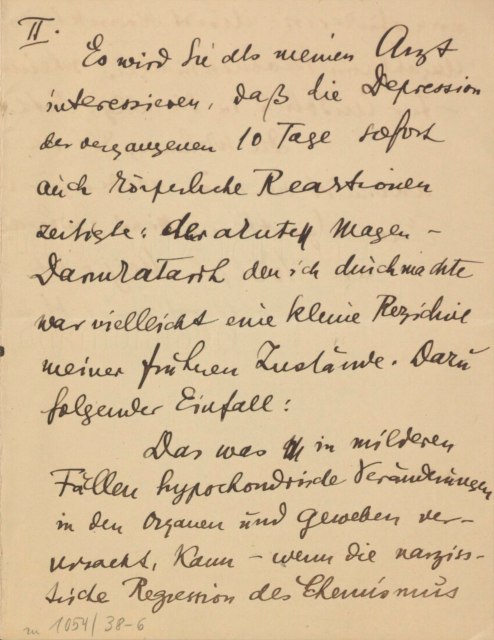 II.
Es wird Sie als meinen Arzt
interessieren, daß die Depression
der vergangenen 10 Tage sofort
auch körperliche Reactionen
zeitigte: der acute Magen-
Darmkatarrh den ich durchmachte
war vielleicht eine kleine Rezidive
meiner frühern Zustände. Dazu
folgender Einfall:
Das was in milderen
Fällen hypochondrische Veränderungen
in den Organen und Geweben ver-
ursacht, kann – wenn die narziss-
tische Regression des Chemismus
zu 1054/38-6